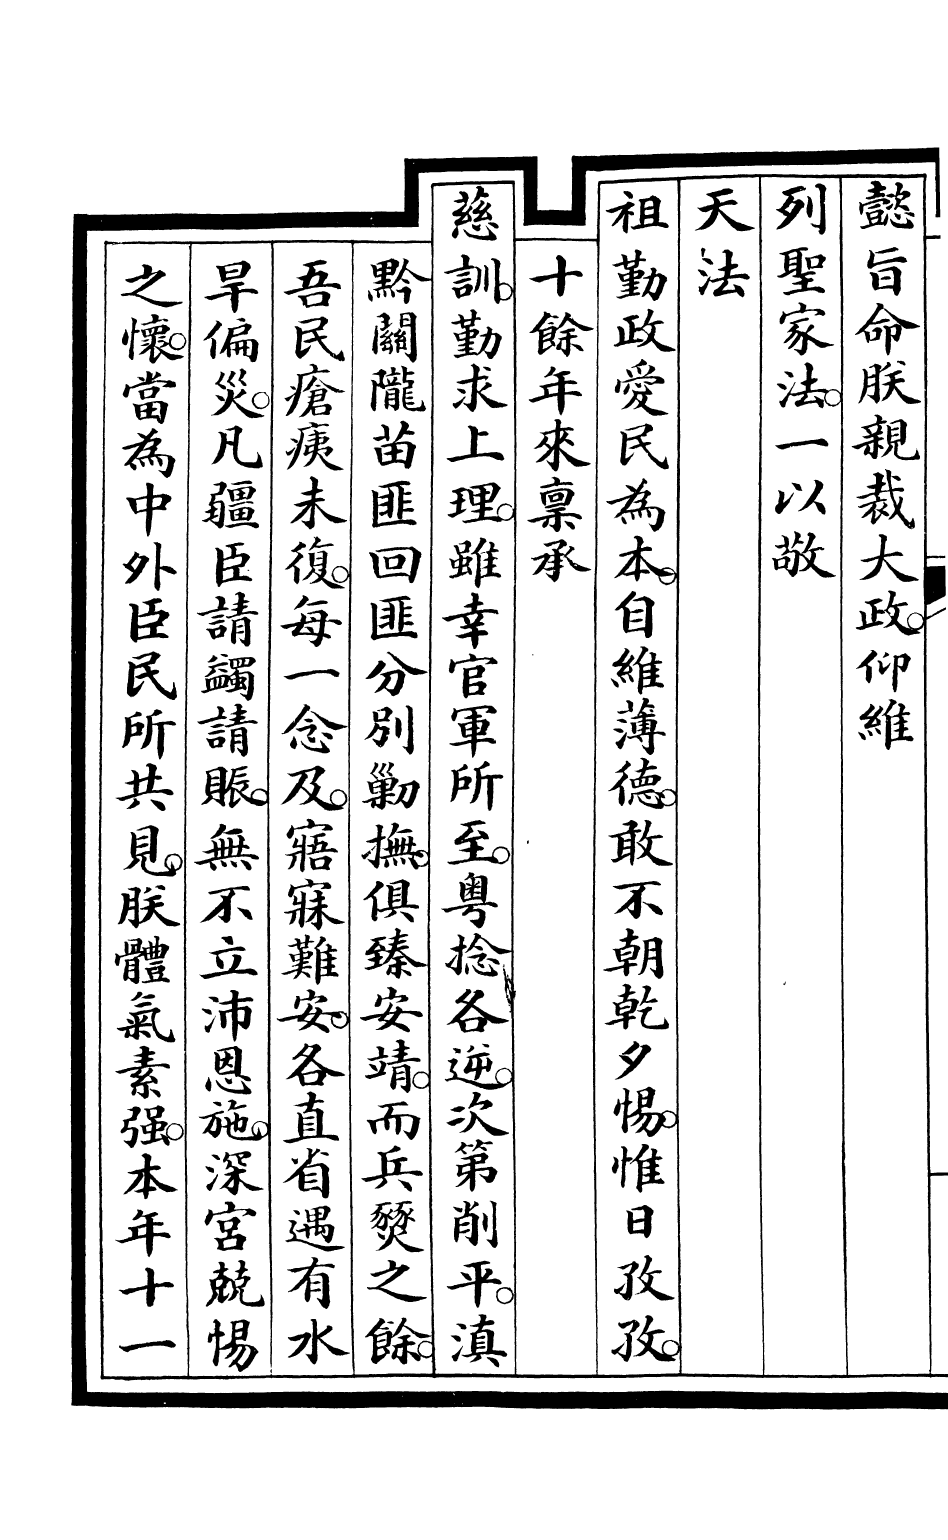 懿旨命朕親裁大政。仰維
列聖家法。一以敬
天法
祖勤政愛民為本。自維薄德。敢不朝乾夕惕。惟日孜孜。
十餘年來稟承
慈訓。勤求上理。雖幸官軍所至。粵捻各逆。次第削平。滇
黔關隴苗匪回匪分別勦撫。俱臻安靖。而兵燹之餘。
吾民瘡痍未復。每一念及。寤寐難安。各直省遇有水
旱偏災。凡疆臣請蠲請賑。無不立沛恩施。深宮兢惕
之懷。當為中外臣民所共見。朕體氣素强。本年十一